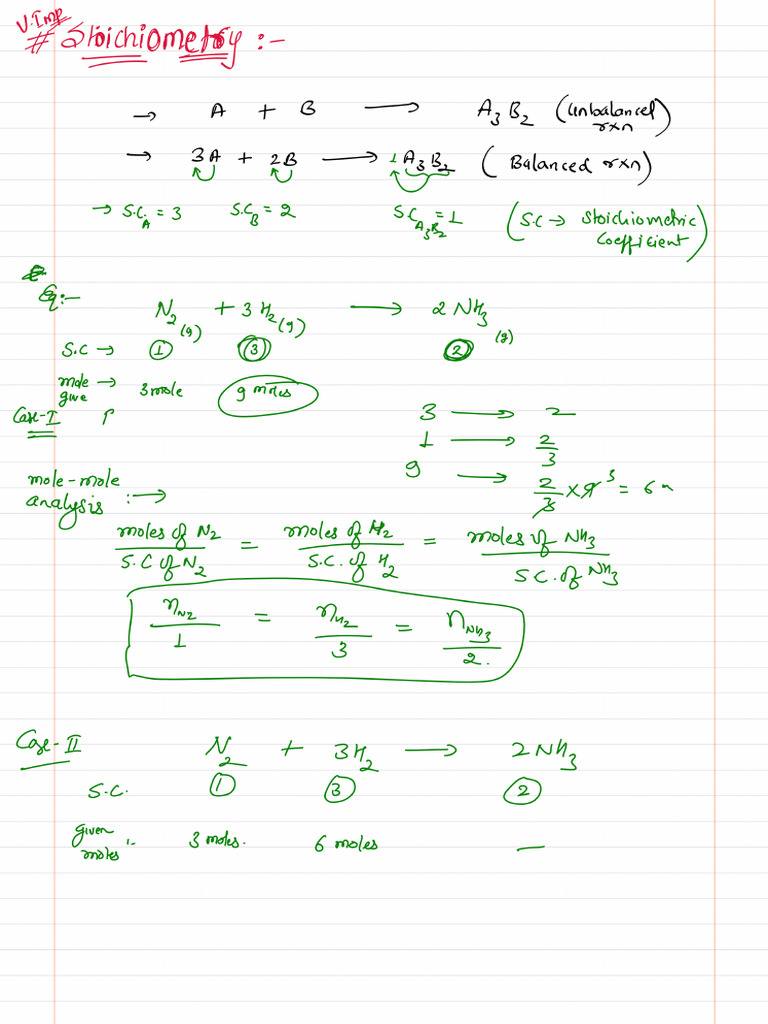 V. Imp
# Stoichiometry :-
→ A + B ⟶ A₃B₂ (Unbalanced rxn)
→ 3A + 2B ⟶ 1A₃B₂ (Balanced rxn)
→ S.C._A = 3 S.C_B = 2 S.C_A₃B₂ = 1 (S.C → Stoichiometric Coefficient)
Eg:-
N₂(g) + 3H₂(g) ⟶ 2NH₃(g)
S.C → 1 3 2
mole give → 3 mole 9 moles
Case-I
3 ⟶ 2
1 ⟶ 2/3
9 ⟶ 2/3 × 9 3 = 6
mole-mole analysis :→
moles of N₂/S.C of N₂ = moles of H₂/S.C. of H₂ = moles of NH₃/S.C. of NH₃
n_N₂/1 = n_H₂/3 = n_NH₃/2.
Case-II N₂ + 3H₂ ⟶ 2NH₃
S.C. 1 3 2
given moles :- 3 moles. 6 moles —